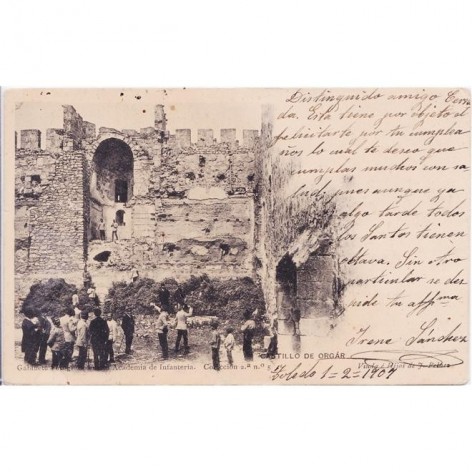 Distinguido amigo
da. Esta tiene por objeto el
felicitarte por tu cumplea
ños lo cual te deseo que
cumplas muchos con sa
lud, pues aunque ya
algo tarde todos
los Santos tienen
octava. Sin otro
particular se des
pide tu affma
Irene Sánchez
CASTILLO DE ORGÁR
Academia de Infantería. Colección 2.ª n.º
Viuda é Hijos de J. Peláez
Toledo 1=2=1904